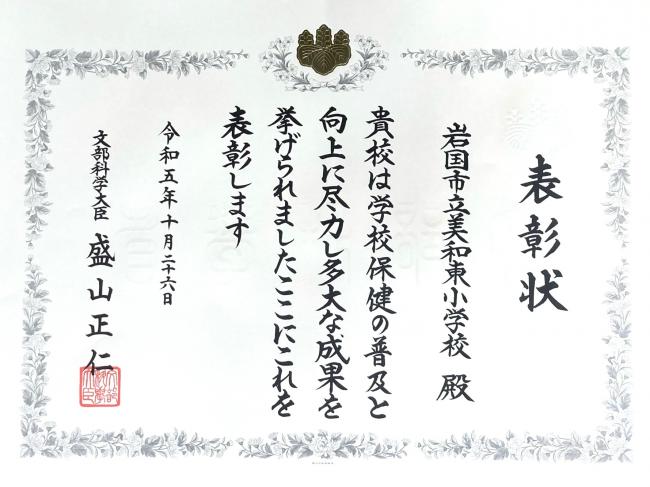 表彰状
岩国市立美和東小学校 殿
貴校は学校保健の普及と
向上に尽力し多大な成果を
挙げられましたここにこれを
表彰します
令和五年十月二十六日
文部科学大臣 盛山正仁